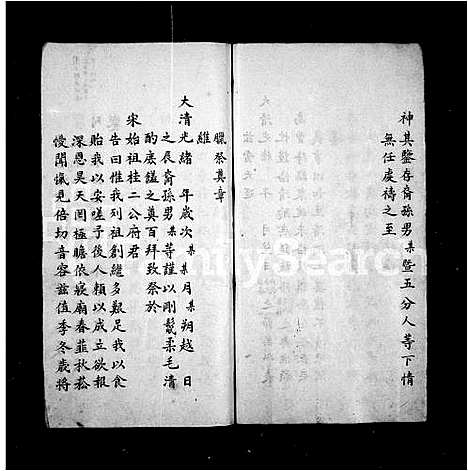 神其鑒存裔孫男某暨五分人等下情
無任虔禱之至
臘祭奠章
維
大清光緒　年歲次某某月某朔越　日
之辰裔孫男某等謹以剛鬣柔毛清
酌庶饈之奠百拜致祭於
宋始祖桂二公府君
告曰惟我列祖創繼多艱足我以食
貽我以安嗟予後人賴以成立欲報
深恩昊天罔極瞻依寢廟春韭秋菘
僾聞愾見倍切音容茲值季冬歲將
FamilySearch